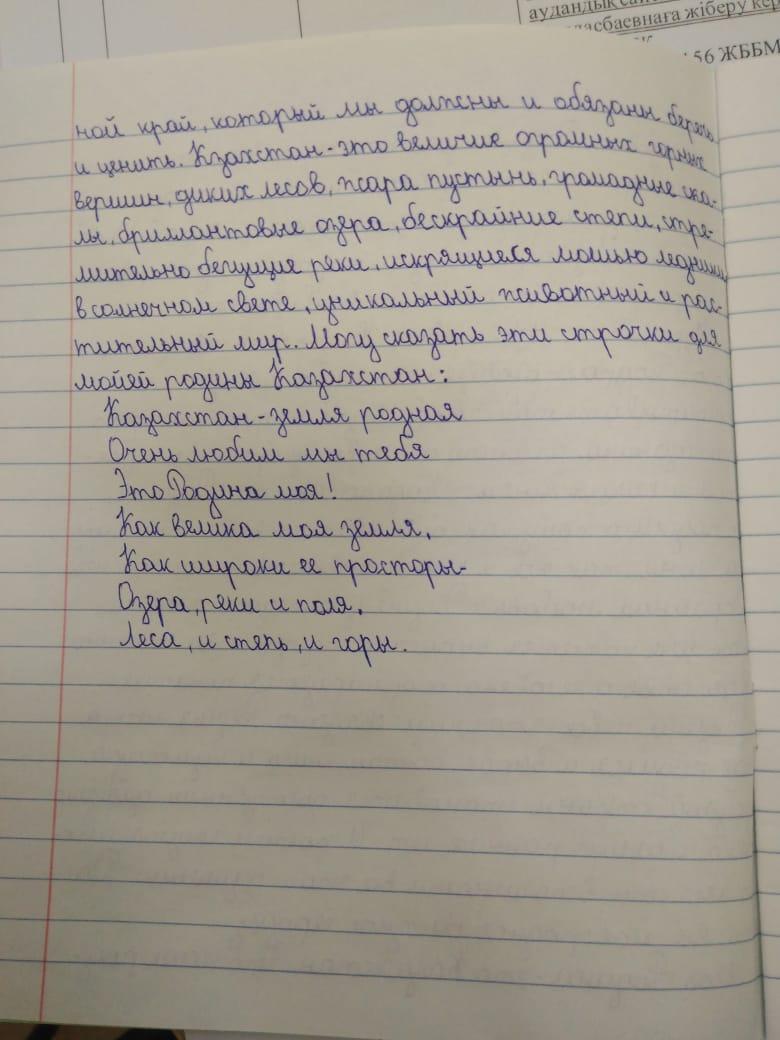 аудандық
асбаевнаға жіберу кер
56 ЖББМ
ной край, который мы должны и обязаны беречь
и ценить. Кзахстан-это величие огромных горных
вершин, диких лесов, жара пустынь, громадные ска-
лы, бриллиантовые озера, бескрайние степи, стре-
мительно бегущие реки, искрящиеся мощью ледники
в солнечном свете, уникальный животный и рас-
тительный мир. Могу сказать эти строчки для
мойей родины Казахстан:
Казахстан-земля родная
Очень любим мы тебя
Это Родина моя!
Как велика моя земля,
Как широки ее просторы-
Озера, реки и поля,
Леса, и степь, и горы.